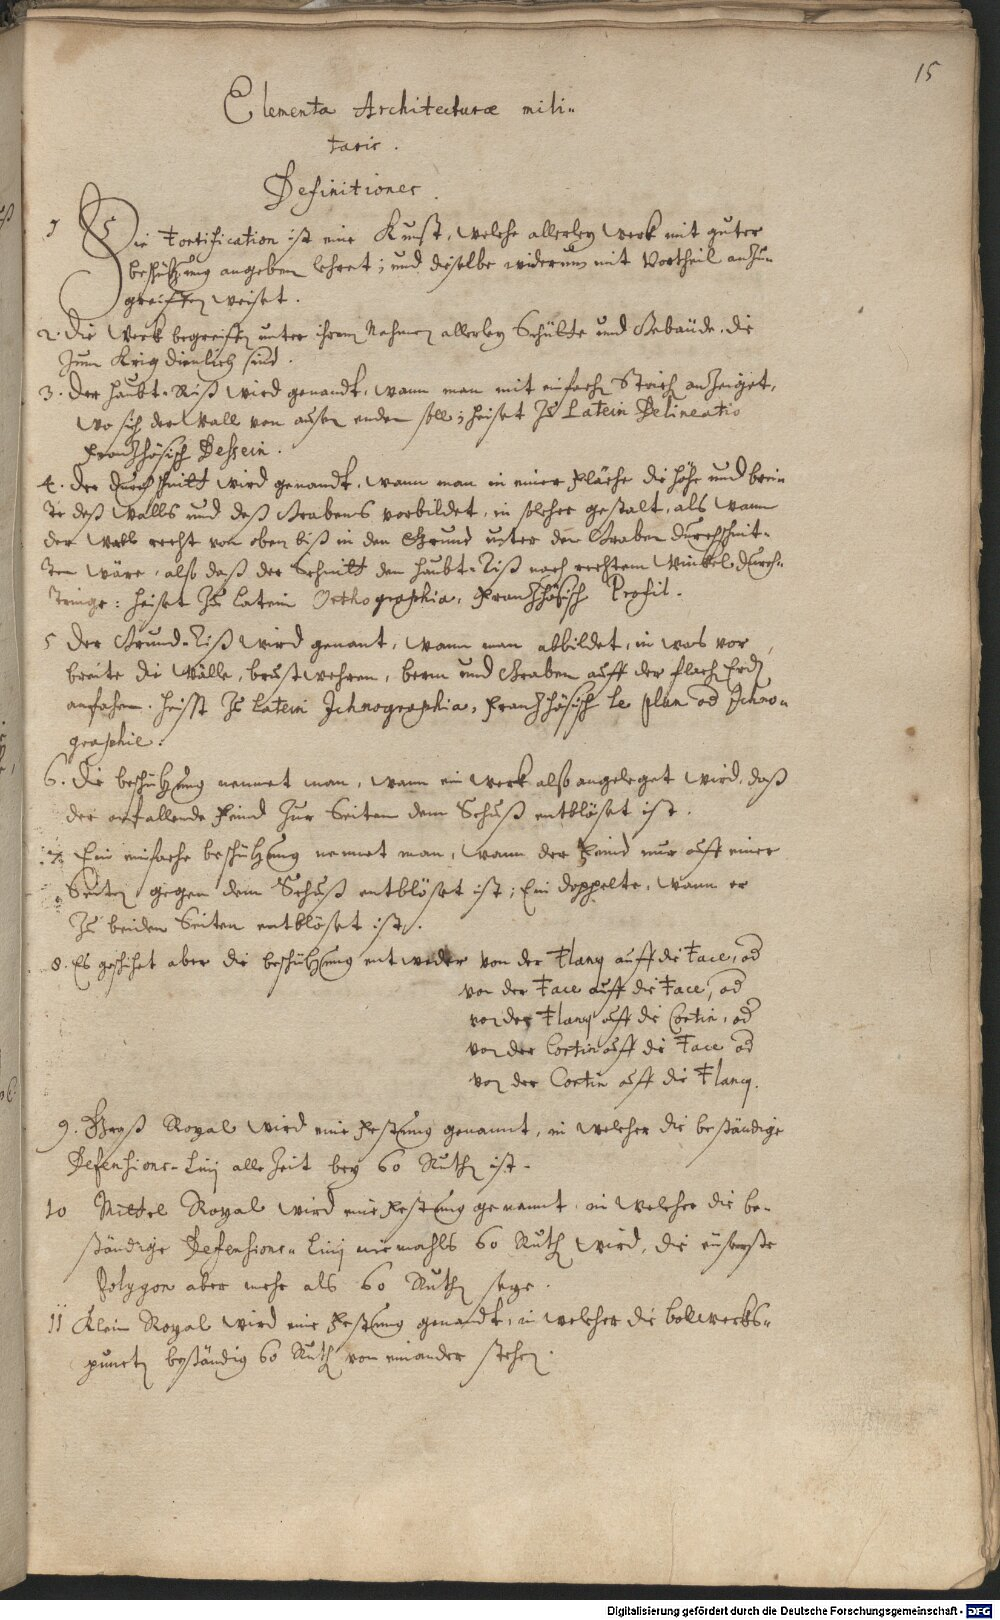 15
Elementa Architecturæ mili-
taris.
Definitiones.
1 Die Fortification ist eine Kunst, welche allerley Werk mit guter
beschützung angeben lehret; und dieselbe widerumb mit Vortheil anzu-
greiffen weiset.
2. Die Werk begreiffen unter ihrem Nahmen allerley Schütte und Gebäude, die
zum Krieg dienlich sind.
3. Der Haubt-Riß wird genandt, wann man mit einfachen Strich anzeiget,
wo sich der Wall von außen enden soll; heiset zu Latein Delineatio
Frantzösisch Dessein.
4. Der Durchschnitt wird genandt, wann man in einer Fläche die höhe und brei-
te deß Walls und deß Grabens vorbildet, in solcher gestalt, als wann
der Wall recht von oben biß in den Grund unter den Graben durchschnit-
ten wäre, also daß der Schnitt den Haubt-Riß nach rechtem Winckel durch-
tringe: heiset zu Latein Orthographia, Frantzösisch Profil.
5 Der Grund-Riß wird genant, wann man abbildet, in was vor
breite die Wälle, brustwehren, berm und Graben auff der flachen Erden
anfahen. Heisst zu Latein Ichnographia, Frantzösisch le plan od Ichno-
graphie.
6. Die beschützung nennet man, wann ein Werk also angeleget wird, daß
der anfallende Feind zur Seiten dem Schuß entblöset ist.
7. Ein einfache beschützung nennet man, wann der Feind nur auff einer
Seiten gegen dem Schuß entblöset ist; Ein doppelte, wann er
zu beiden Seiten entblöset ist.
8. Es geschihet aber die beschützung entweder von der Flanq auff die Face, od
von der Face auff die Face, od
von der Flanq auff die Cortin, od
von der Cortin auff die Face od
von der Cortin auff die Flanq.
9. Groß Royal wird eine Festung genannt, in welcher die beständige
Defensions-Linj alle Zeit bey 60 Ruthen ist.
10 Mittel Royal wird eine Festung genannt, in welcher die be-
ständige Defensions-Linj niemahls 60 Ruthen wird, die eüserste
Polygon aber mehr als 60 Ruthen seye.
11 Klein Royal wird eine Festung genandt, in welcher die bollwerks-
puncten beständig 60 Ruthen von einander stehen.
Digitalisierung gefördert durch die Deutsche Forschungsgemeinschaft - DFG